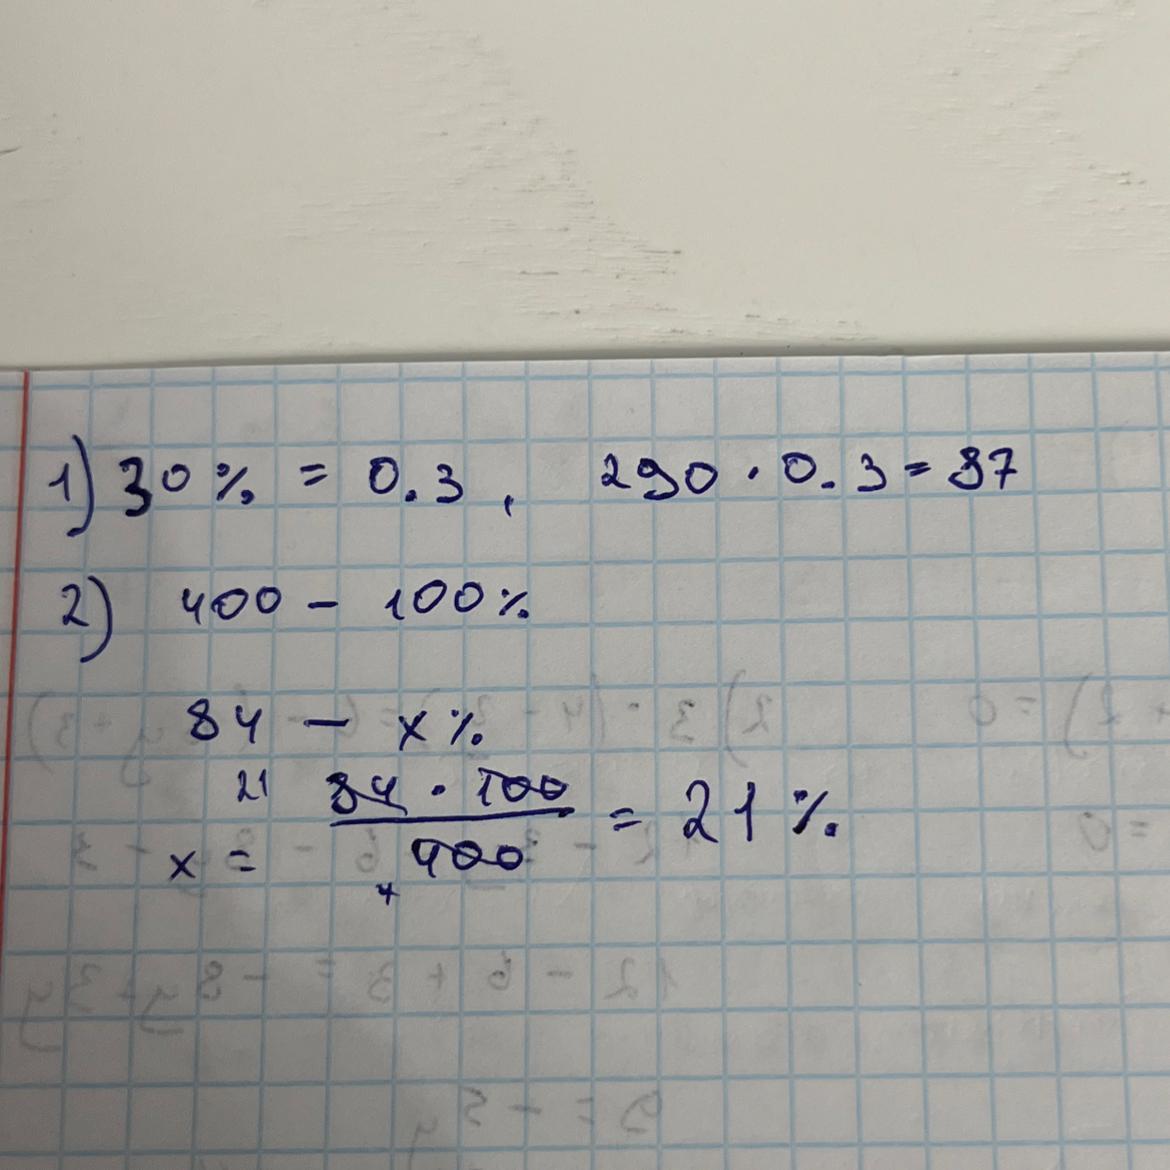 1) 30% = 0.3, 290 · 0.3 = 87
2) 400 – 100%
84 – x%
21 84 · 100
x = = 21%
4 400